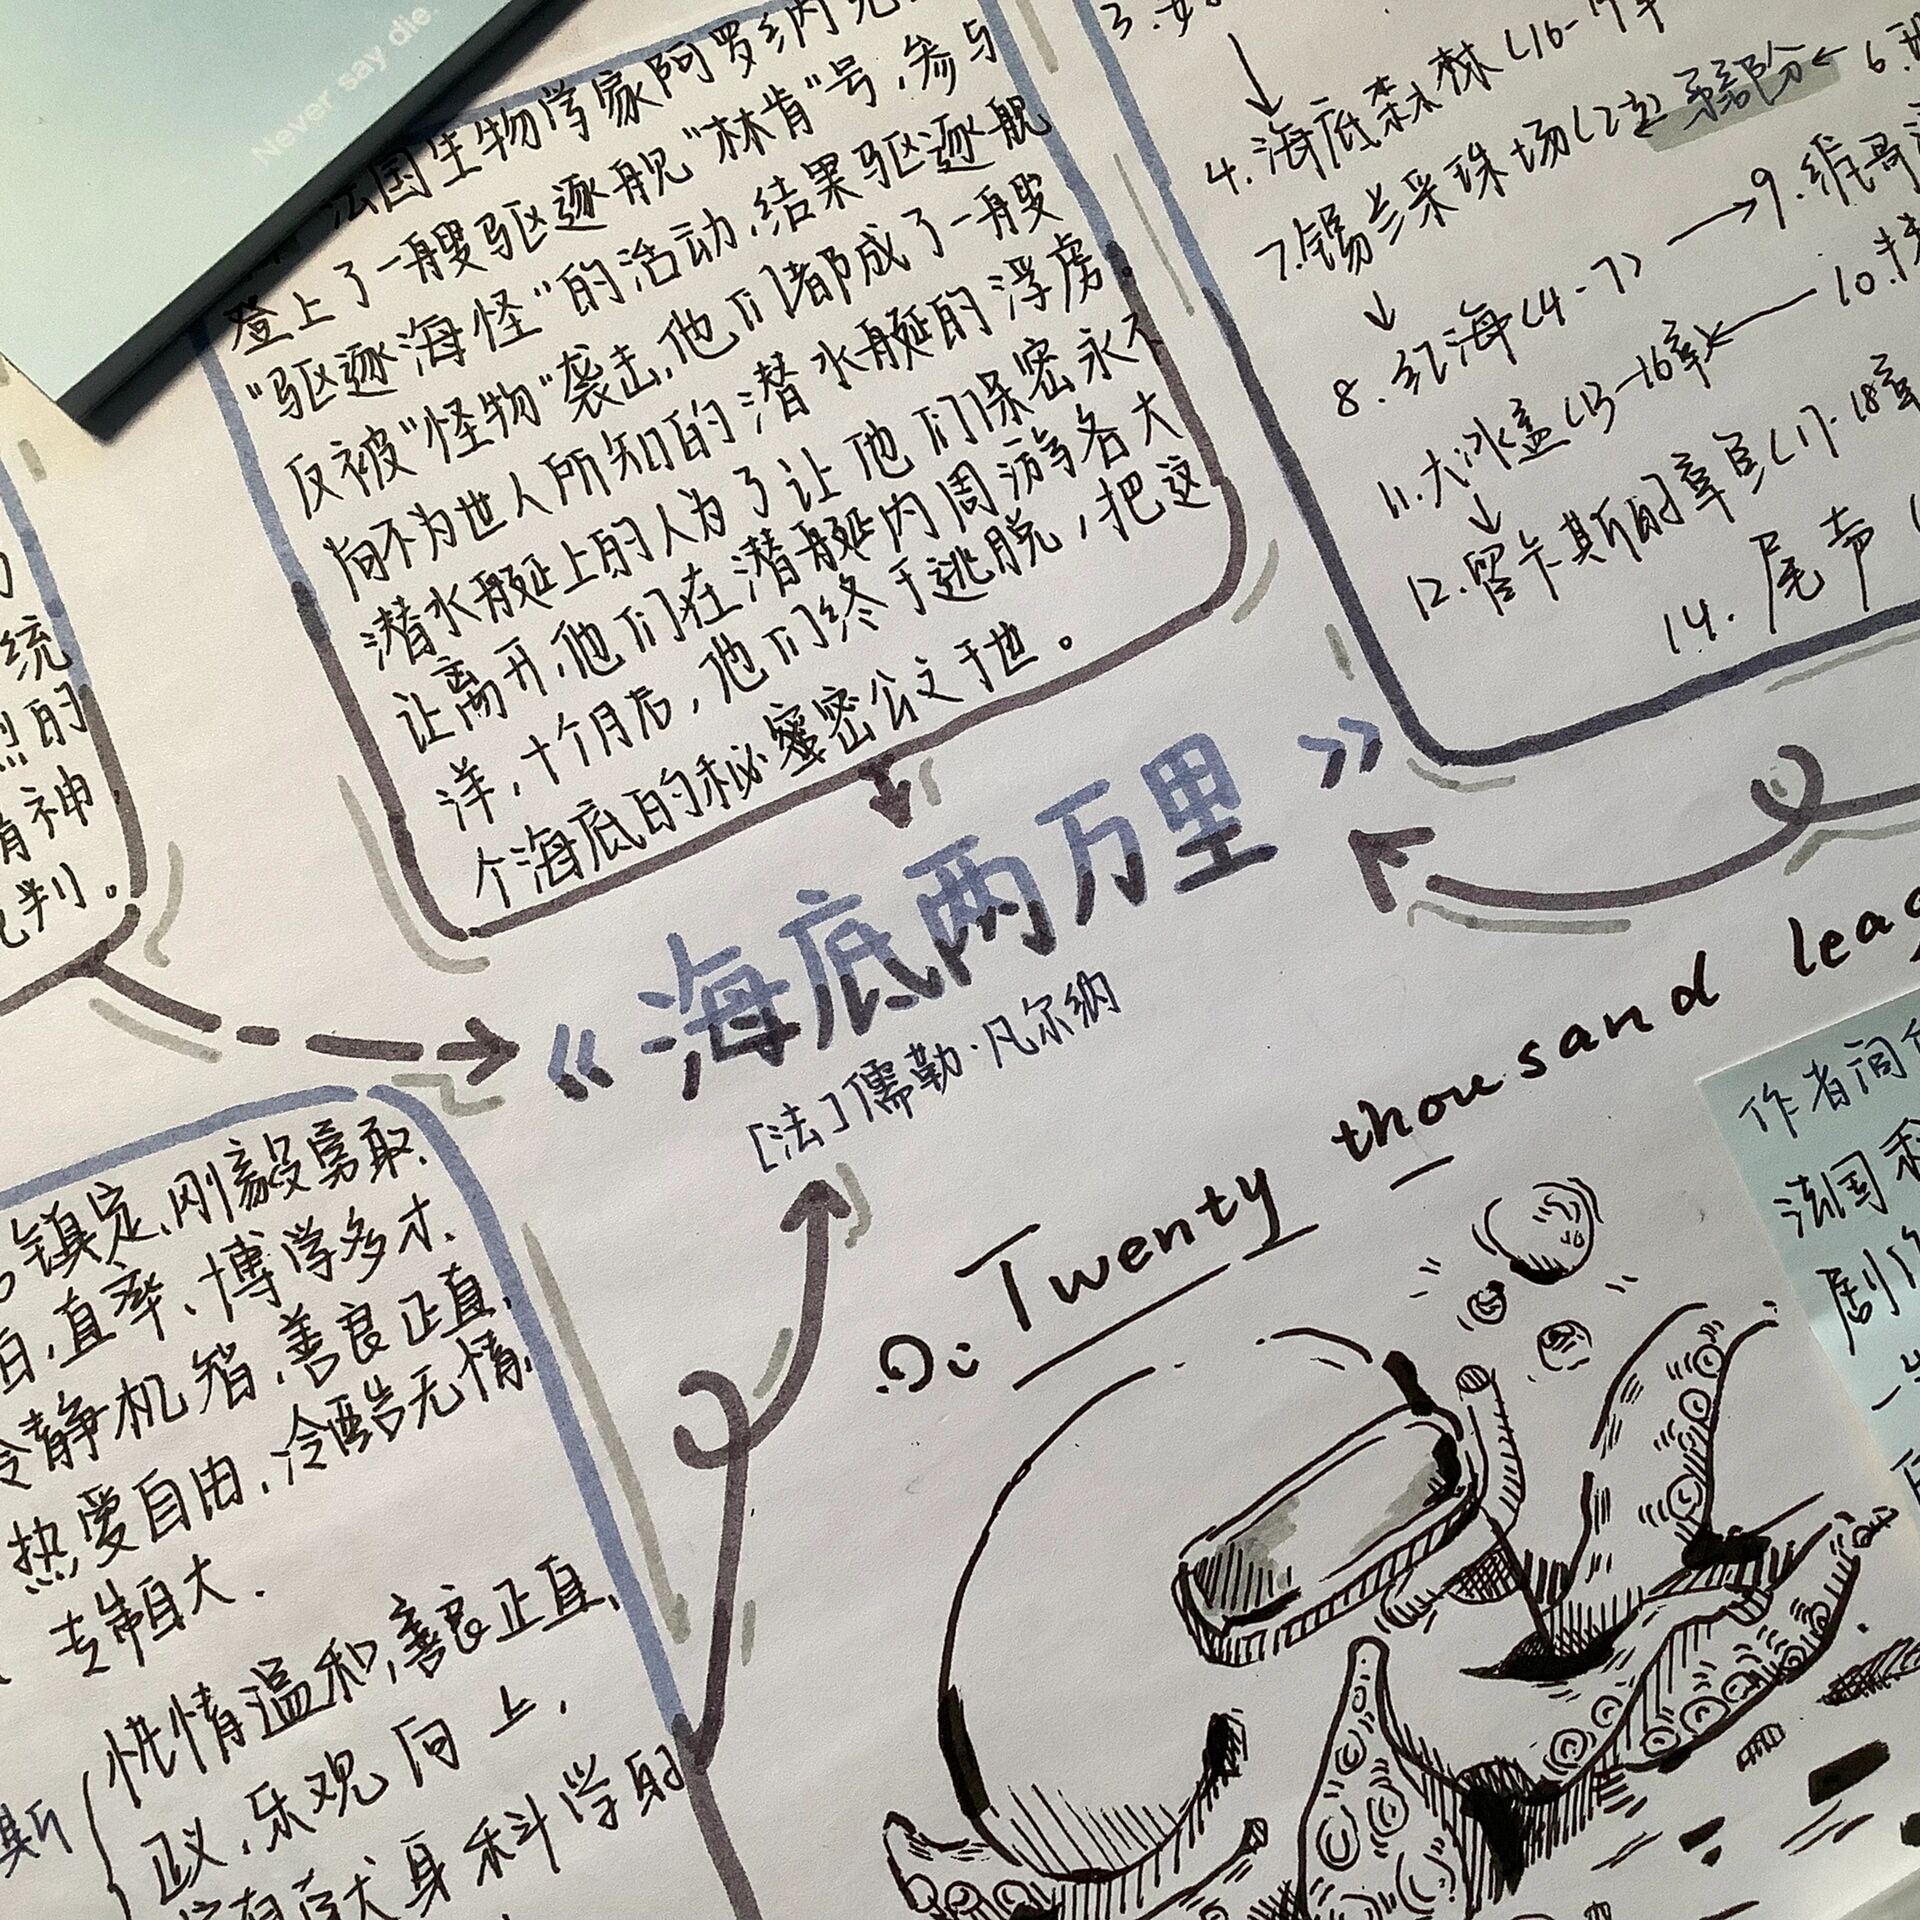 Never say die.
法国生物学家阿罗纳
登上了一艘驱逐舰"林肯"号,参与
"驱逐海怪"的活动,结果驱逐舰
反被"怪物"袭击,他们都成了一艘
尚不为世人所知的潜水艇的浮虏
潜水艇上的人为了让他们保密永不
让离开,他们在潜艇内周游各大
洋,十个月后,他们终于逃脱,把这
个海底的秘密公文于世。
4.海底森林(16-17章
第二部分← 6.
7.锡兰采珠场(2章
↓
8.红海(4-7) →9.维哥
10.
11.大冰盖(13-16章←
↓
12.留卡斯的章鱼(17-18章
14.尾声
统
的
精神,
判。
《海底两万里》
[法]儒勒·凡尔纳
Twenty thousand leag
作者
法国
剧
一
镇定,刚毅勇敢,
直率,博学多才.
冷静机智,善良正直,
热爱自由,冷酷无情,
大.
性情温和,善良正直,
乐观向上,
斯
献身科学的